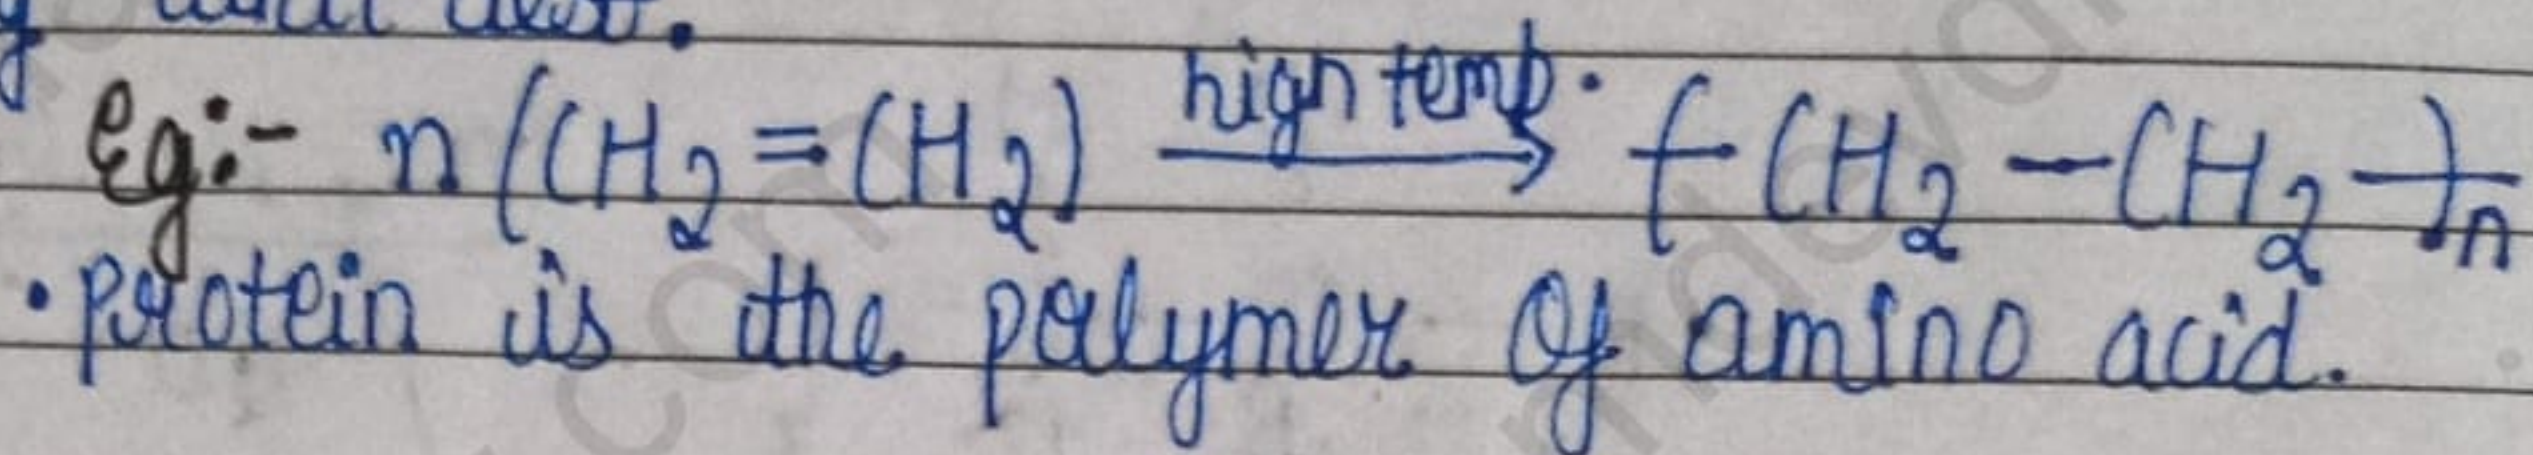 Eg:- n(CH₂=CH₂) high temp. → -(CH₂-CH₂-)n
• protein is the polymer of amino acid.